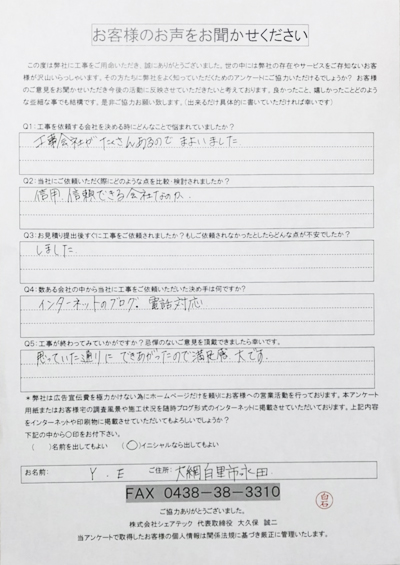 お客様のお声をお聞かせください
この度は弊社に工事をご用命いただき、誠にありがとうございました。世の中には弊社の存在やサービスをご存知ないお客様
が沢山いらっしゃいます。その方たちに弊社をよく知っていただくためのアンケートにご協力いただけるでしょうか？ お客様
のご意見をお聞かせいただき今後の活動に反映させていただきたいと考えております。良かったこと、嬉しかったことどのよう
な些細な事でも結構です。是非ご協力お願い致します。（出来るだけ具体的に書いていただければ幸いです）
Q1：工事を依頼する会社を決める時にどんなことで悩まれていましたか？
工事会社がたくさんあるので まよいました
Q2：当社にご依頼いただく際にどのような点を比較・検討されましたか？
信用、信頼できる会社なのか、
Q3：お見積り提出後すぐに工事をご依頼されましたか？もしご依頼されなかったとしたらどんな点が不安でしたか？
しました
Q4：数ある会社の中から当社に工事をご依頼いただいた決め手は何ですか？
インターネットのブログ。電話対応
Q5：工事が終わってみていかがですか？忌憚のないご意見を頂戴できましたら幸いです。
思っていた通りに できあがったので満足感、大です。
＊弊社は広告宣伝費を極力かけない為にホームページだけを頼りにお客様への営業活動を行っております。本アンケート
用紙またはお客様宅の調査風景や施工状況を随時ブログ形式のインターネットに掲載させていただいております。上記内容
をインターネットや印刷物に掲載させていただいてもよろしいでしょうか？
下記の中から〇印をお付下さい。
（　）名前を出してもよい （〇）イニシャルなら出してもよい
お名前： Y. E ご住所： 大網白里市永田
FAX 0438-38-3310
白石
ご協力ありがとうございました。
株式会社シェアテック 代表取締役 大久保 誠二
当アンケートで取得したお客様の個人情報は関係法規に基づき厳正に管理いたします。